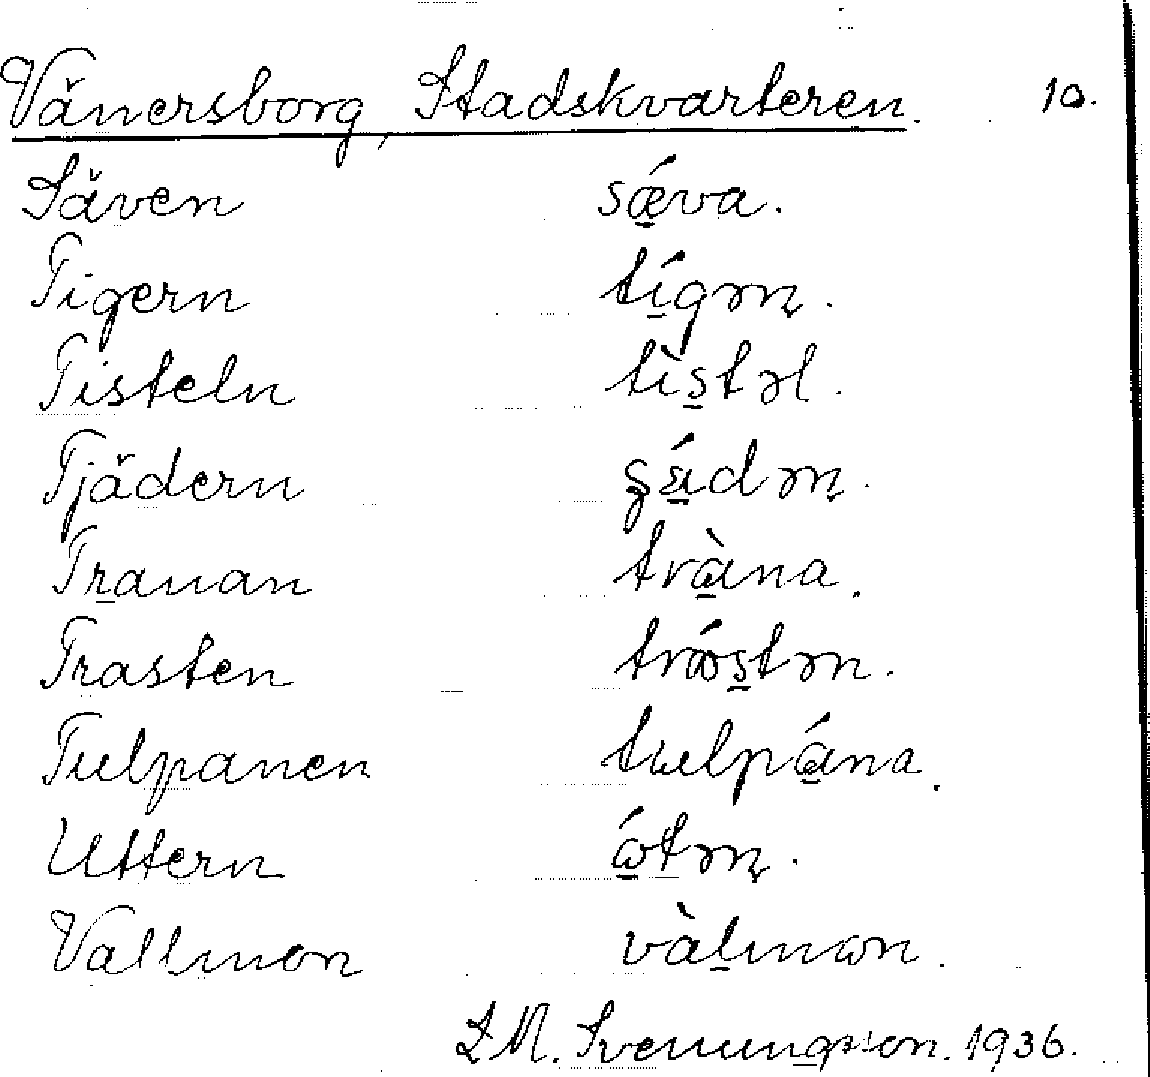 Vänersborg, Stadskvarteren. 10.
Säven sǽ̠va.
Tigern tí̠gəɳ.
Tisteln tìs̠təl.
Tjädern ʂɛ̠́dəɳ.
Tranan trɑ̠̀na.
Trasten trás̠tən.
Tulpanen tulpɑ̠́na.
Uttern ɷ̠́təɳ.
Vallmon vàl̠mɷn.
L M. Svenungsson. 1936.